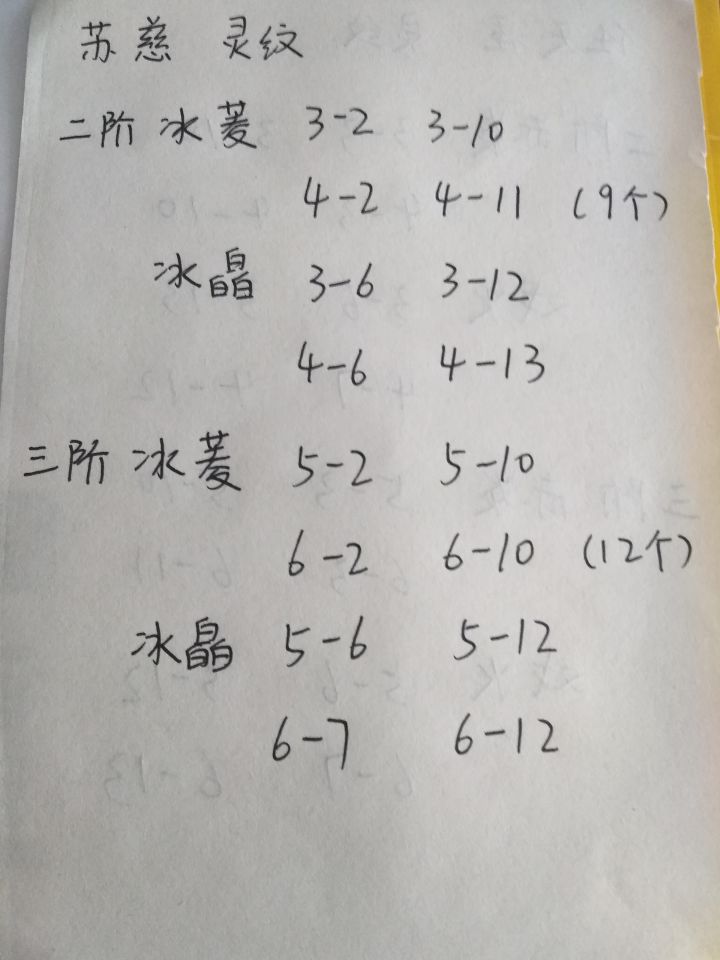 苏慈 灵纹
二阶 冰菱 3-2 3-10
4-2 4-11 (9个)
冰晶 3-6 3-12
4-6 4-13
三阶 冰菱 5-2 5-10
6-2 6-10 (12个)
冰晶 5-6 5-12
6-7 6-12